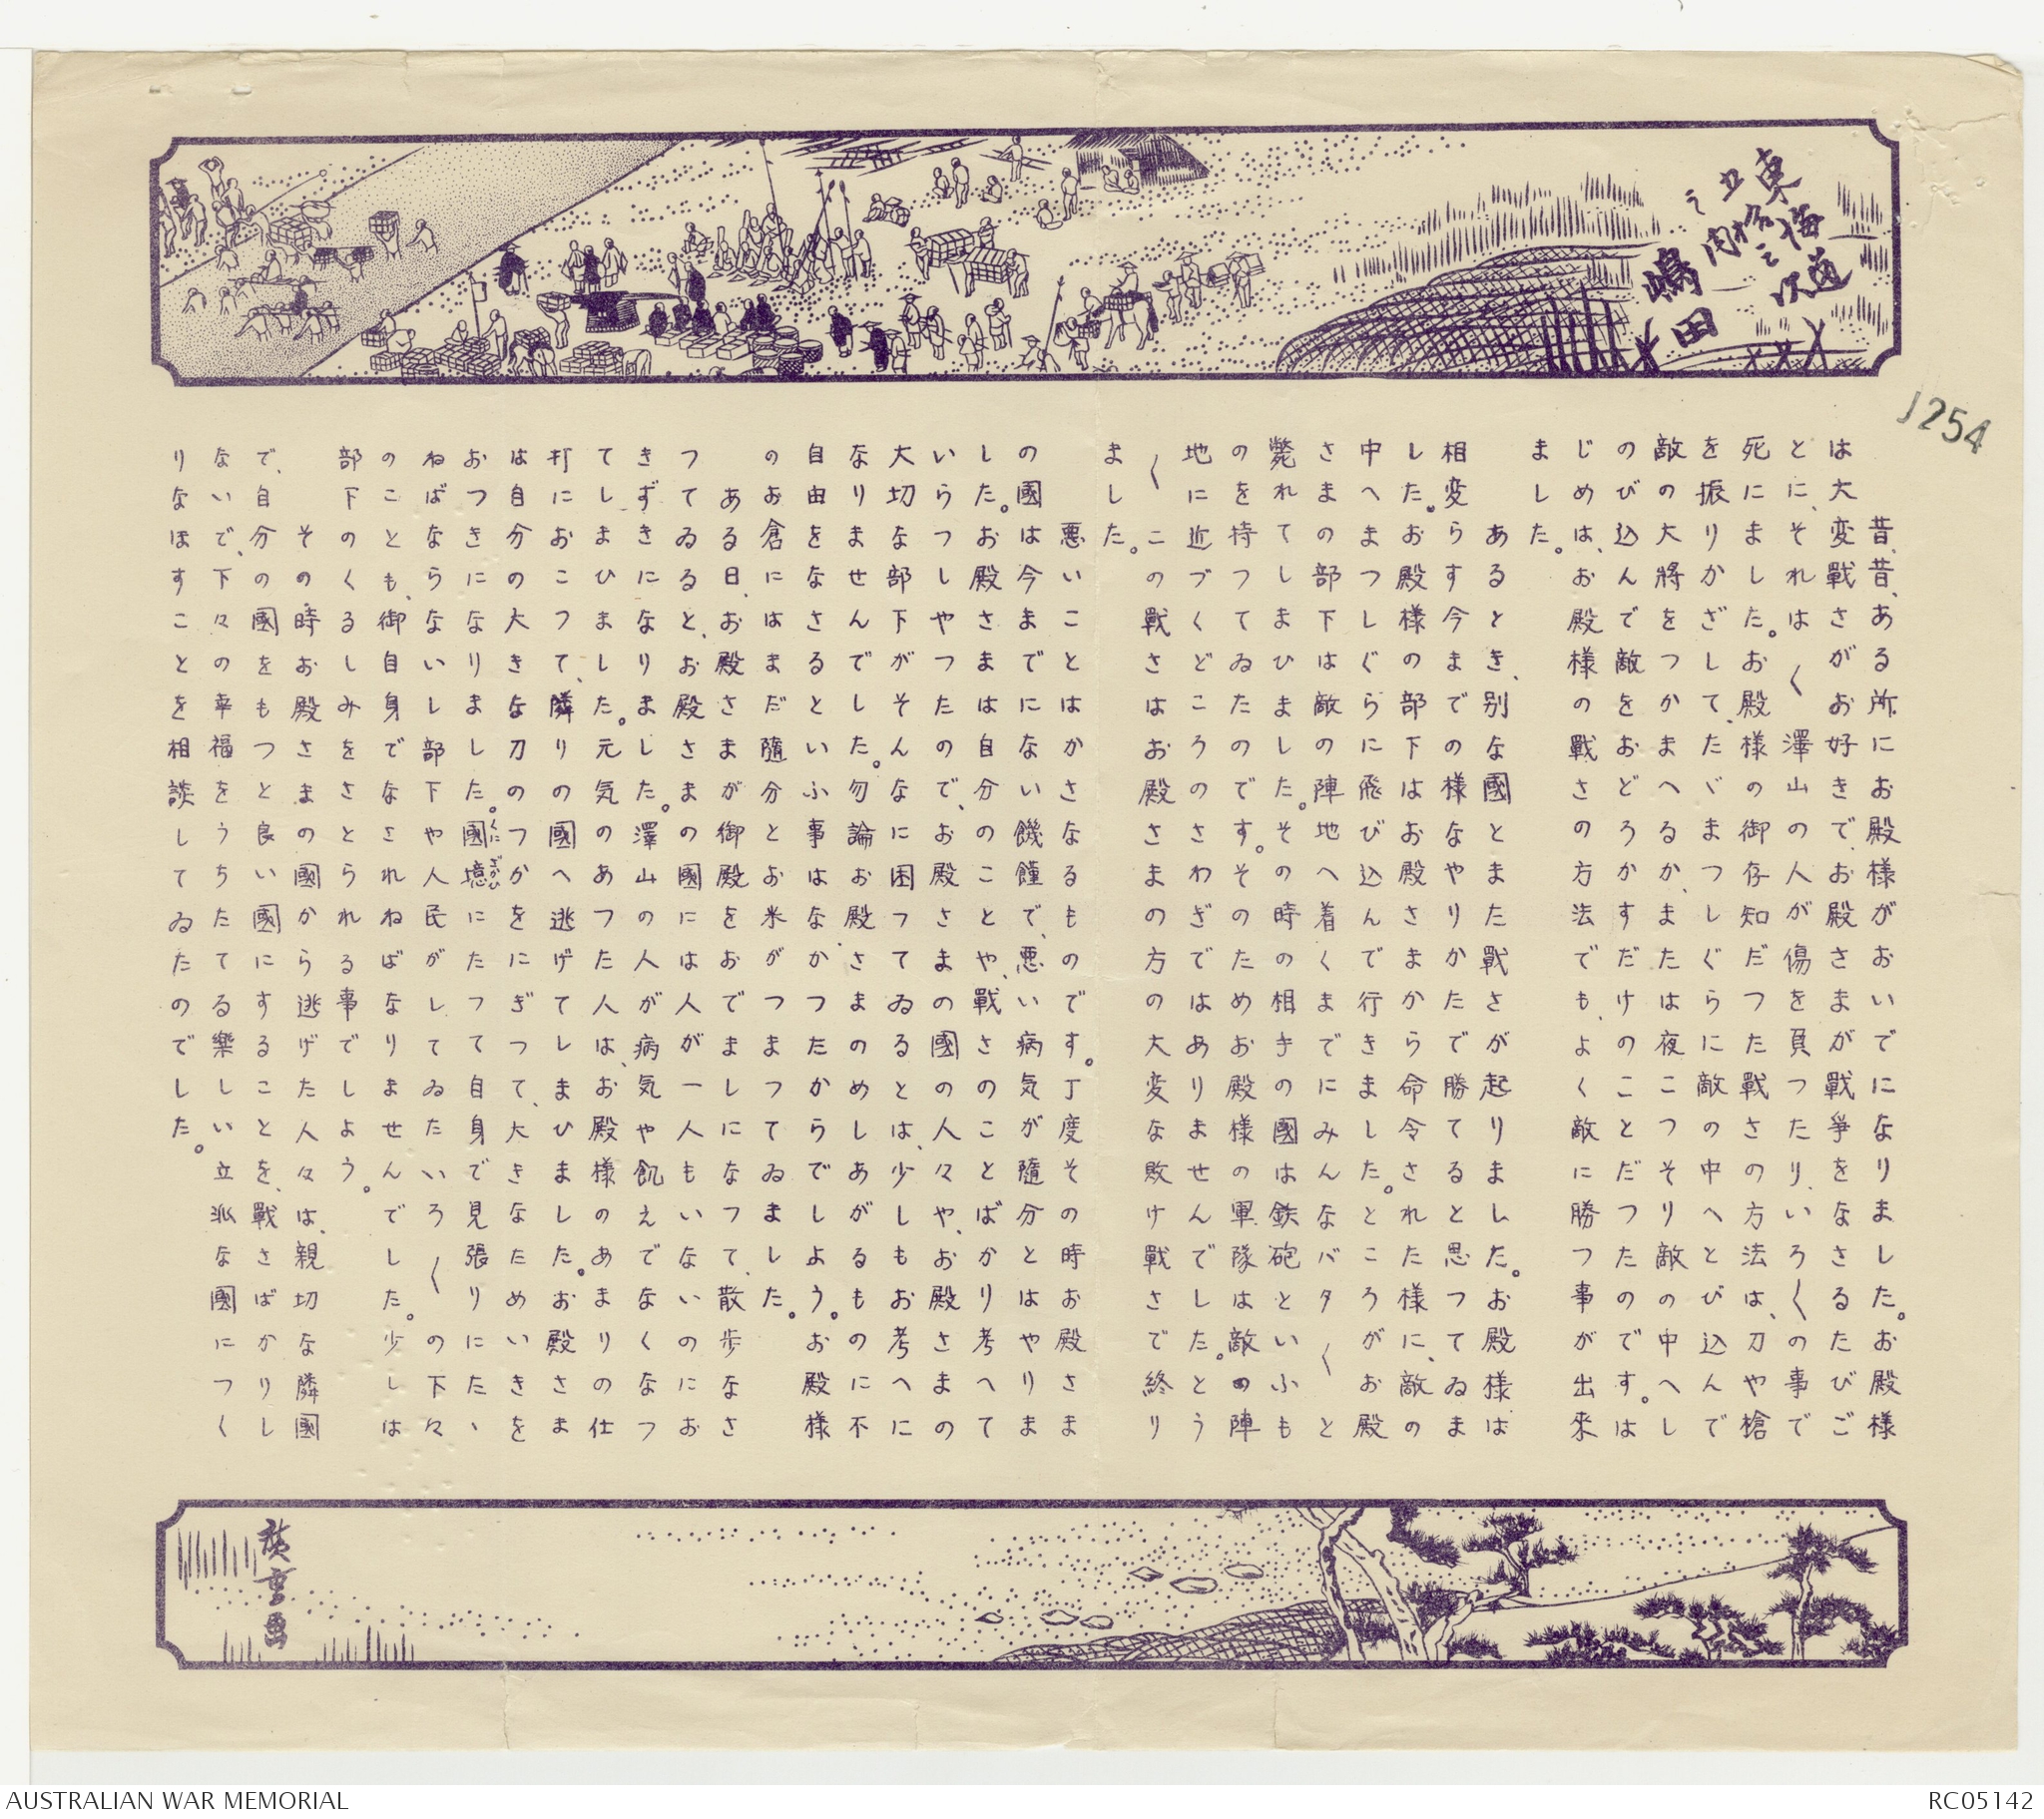 東海道
五拾三次
之内
嶋田
J254
昔、昔、ある所にお殿様がおいでになりました。お殿様
は大変戰さがお好きで、お殿さまが戰爭をなさるたびご
とに、それは〱澤山の人が傷を負つたり、いろ〱の事で
死にました。お殿様の御存知だつた戰さの方法は、刀や槍
を振りかざして、たゞまつしぐらに敵の中へとび込んで
敵の大將をつかまへるか、または夜こつそり敵の中へし
のび込んで敵をおどろかすだけのことだつたのです。は
じめは、お殿様の戰さの方法でも、よく敵に勝つ事が出來
ました。
あるとき、別な國とまた戰さが起りました。お殿様は
相変らす今までの様なやりかたで勝てると思つてゐま
した。お殿様の部下はお殿さまから命令された様に、敵の
中へまつしぐらに飛び込んで行きました。ところがお殿
さまの部下は敵の陣地へ着くまでにみんなバタ〱と
斃れてしまひました。その時の相手の國は鉄砲といふも
のを持つてゐたのです。そのためお殿様の軍隊は敵の陣
地に近づくどころのさわぎではありませんでした。とう
〱この戰さはお殿さまの方の大変な敗け戰さで終り
ました。
悪いことはかさなるものです。丁度その時お殿さま
の國は今までにない饑饉で、悪い病気が隨分とはやりま
した。お殿さまは自分のことや、戰さのことばかり考へて
いらつしやつたので、お殿さまの國の人々や、お殿さまの
大切な部下がそんなに困つてゐるとは、少しもお考へに
なりませんでした。勿論お殿さまのめしあがるものに不
自由をなさるといふ事はなかつたからでしよう。お殿様
のお倉にはまだ隨分とお米がつまつてゐました。
ある日、お殿さまが御殿をおでましになつて、散歩なさ
つてゐると、お殿さまの國には人が一人もいないのにお
きずきになりました。澤山の人が病気や飢えでなくなつ
てしまひました。元気のあつた人は、お殿様のあまりの仕
打におこつて、隣りの國へ逃げてしまひました。お殿さま
は自分の大きな刀のつかをにぎつて、大きなためいきを
おつきになりました。國境(くにざかひ)にたつて自身で見張りにたゝ
ねばならないし部下や人民がしてゐたいろ〱の下々
のことも、御自身でなされねばなりませんでした。少しは
部下のくるしみをさとられる事でしよう。
その時お殿さまの國から逃げた人々は、親切な隣國
で、自分の國をもつと良い國にすることを、戰さばかりし
ないで、下々の幸福をうちたてる樂しい立派な國につく
りなほすことを相談してゐたのでした。
廣重画
AUSTRALIAN WAR MEMORIAL
RC05142